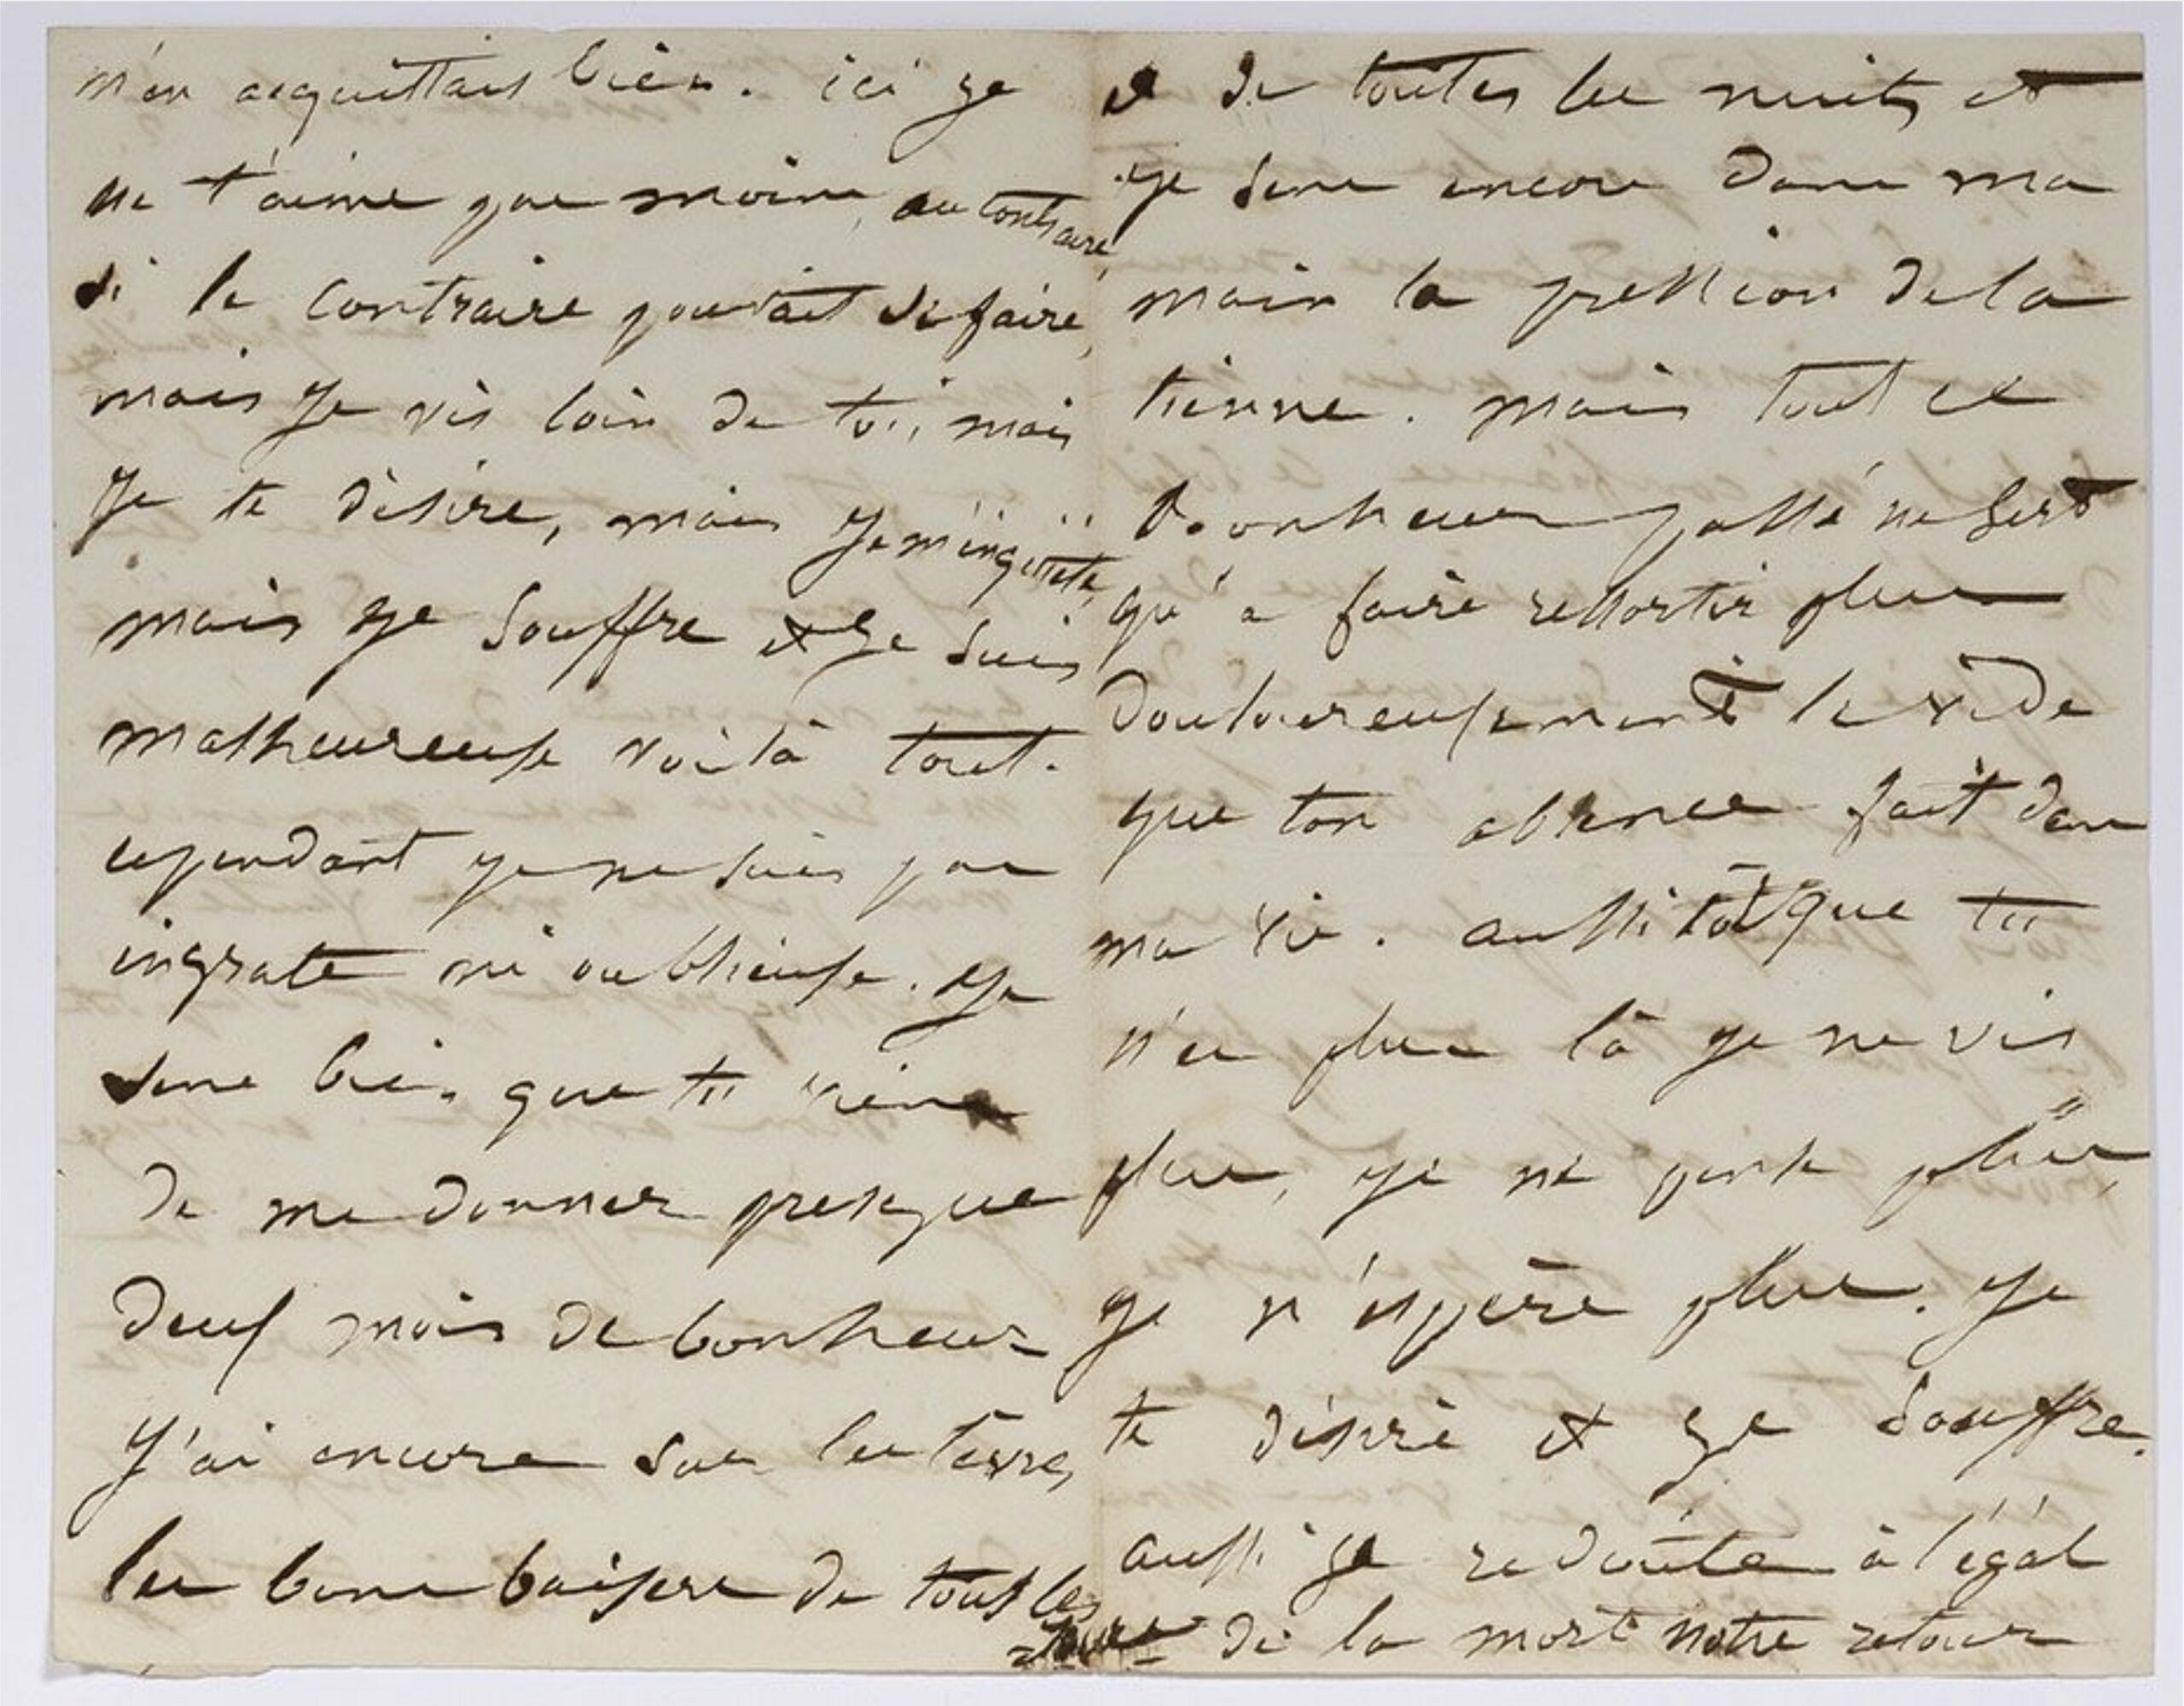 m'en acquittais bien. ici je
ne t'aime pas moins, au contraire,
si le contraire pouvait se faire,
mais je vis loin de toi, mais
je te désire, mais je m'inquiète,
mais je souffre et je suis
malheureuse voilà tout.
cependant je ne suis pas
ingrate ni oublieuse. je
sens bien que tu viens
de me donner presque
deux mois de bonheur
j'ai encore sur les lèvres
les bons baisers de tous les
jours
et de toutes les nuits et
je sens encore dans ma
main la pression de la
tienne. mais tout ce
bonheur passé ne sert
qu'à faire ressortir plus
douloureusement le vide
que ton absence fait dans
ma vie. aussitôt que tu
n'es plus là je ne vis
plus, je ne pense plus,
je n'espère plus. je
te désire et je souffre.
aussi je redoute à l'égal
de la mort notre retour